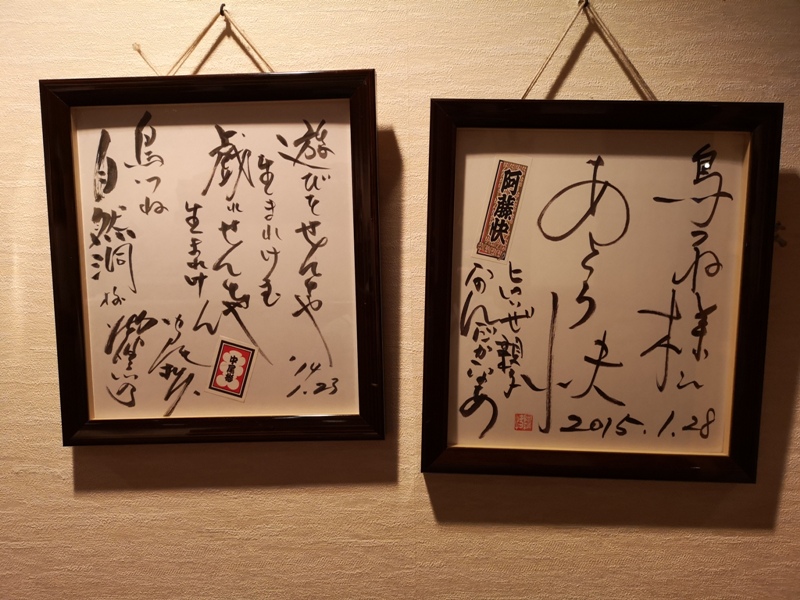 遊びをせんとや
生まれけむ
戯れせんとや
生まれけん
鳥つね
自然洞
'14
1.23
中尾彬
鳥つね様江
あとう快
2015.1.28
阿藤快
なんだかなあ